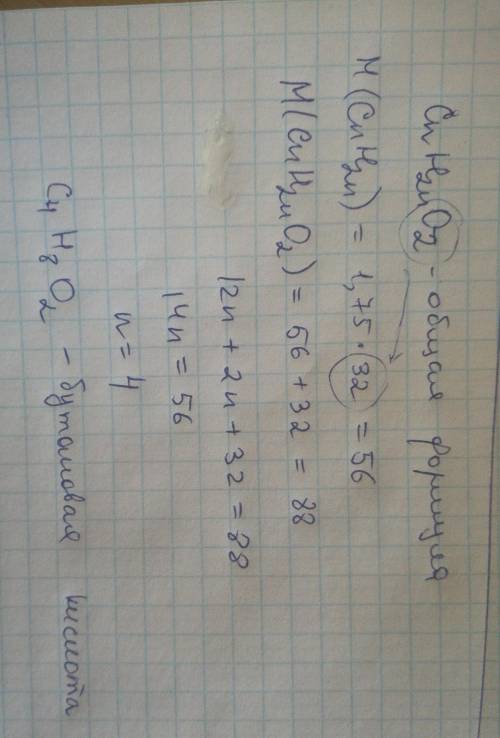 CnH₂nO₂ - общая формула
M(CnH₂n) = 1,75 · 32 = 56
M(CnH₂nO₂) = 56 + 32 = 88
12n + 2n + 32 = 88
14n = 56
n = 4
C₄H₈O₂ - бутановая кислота